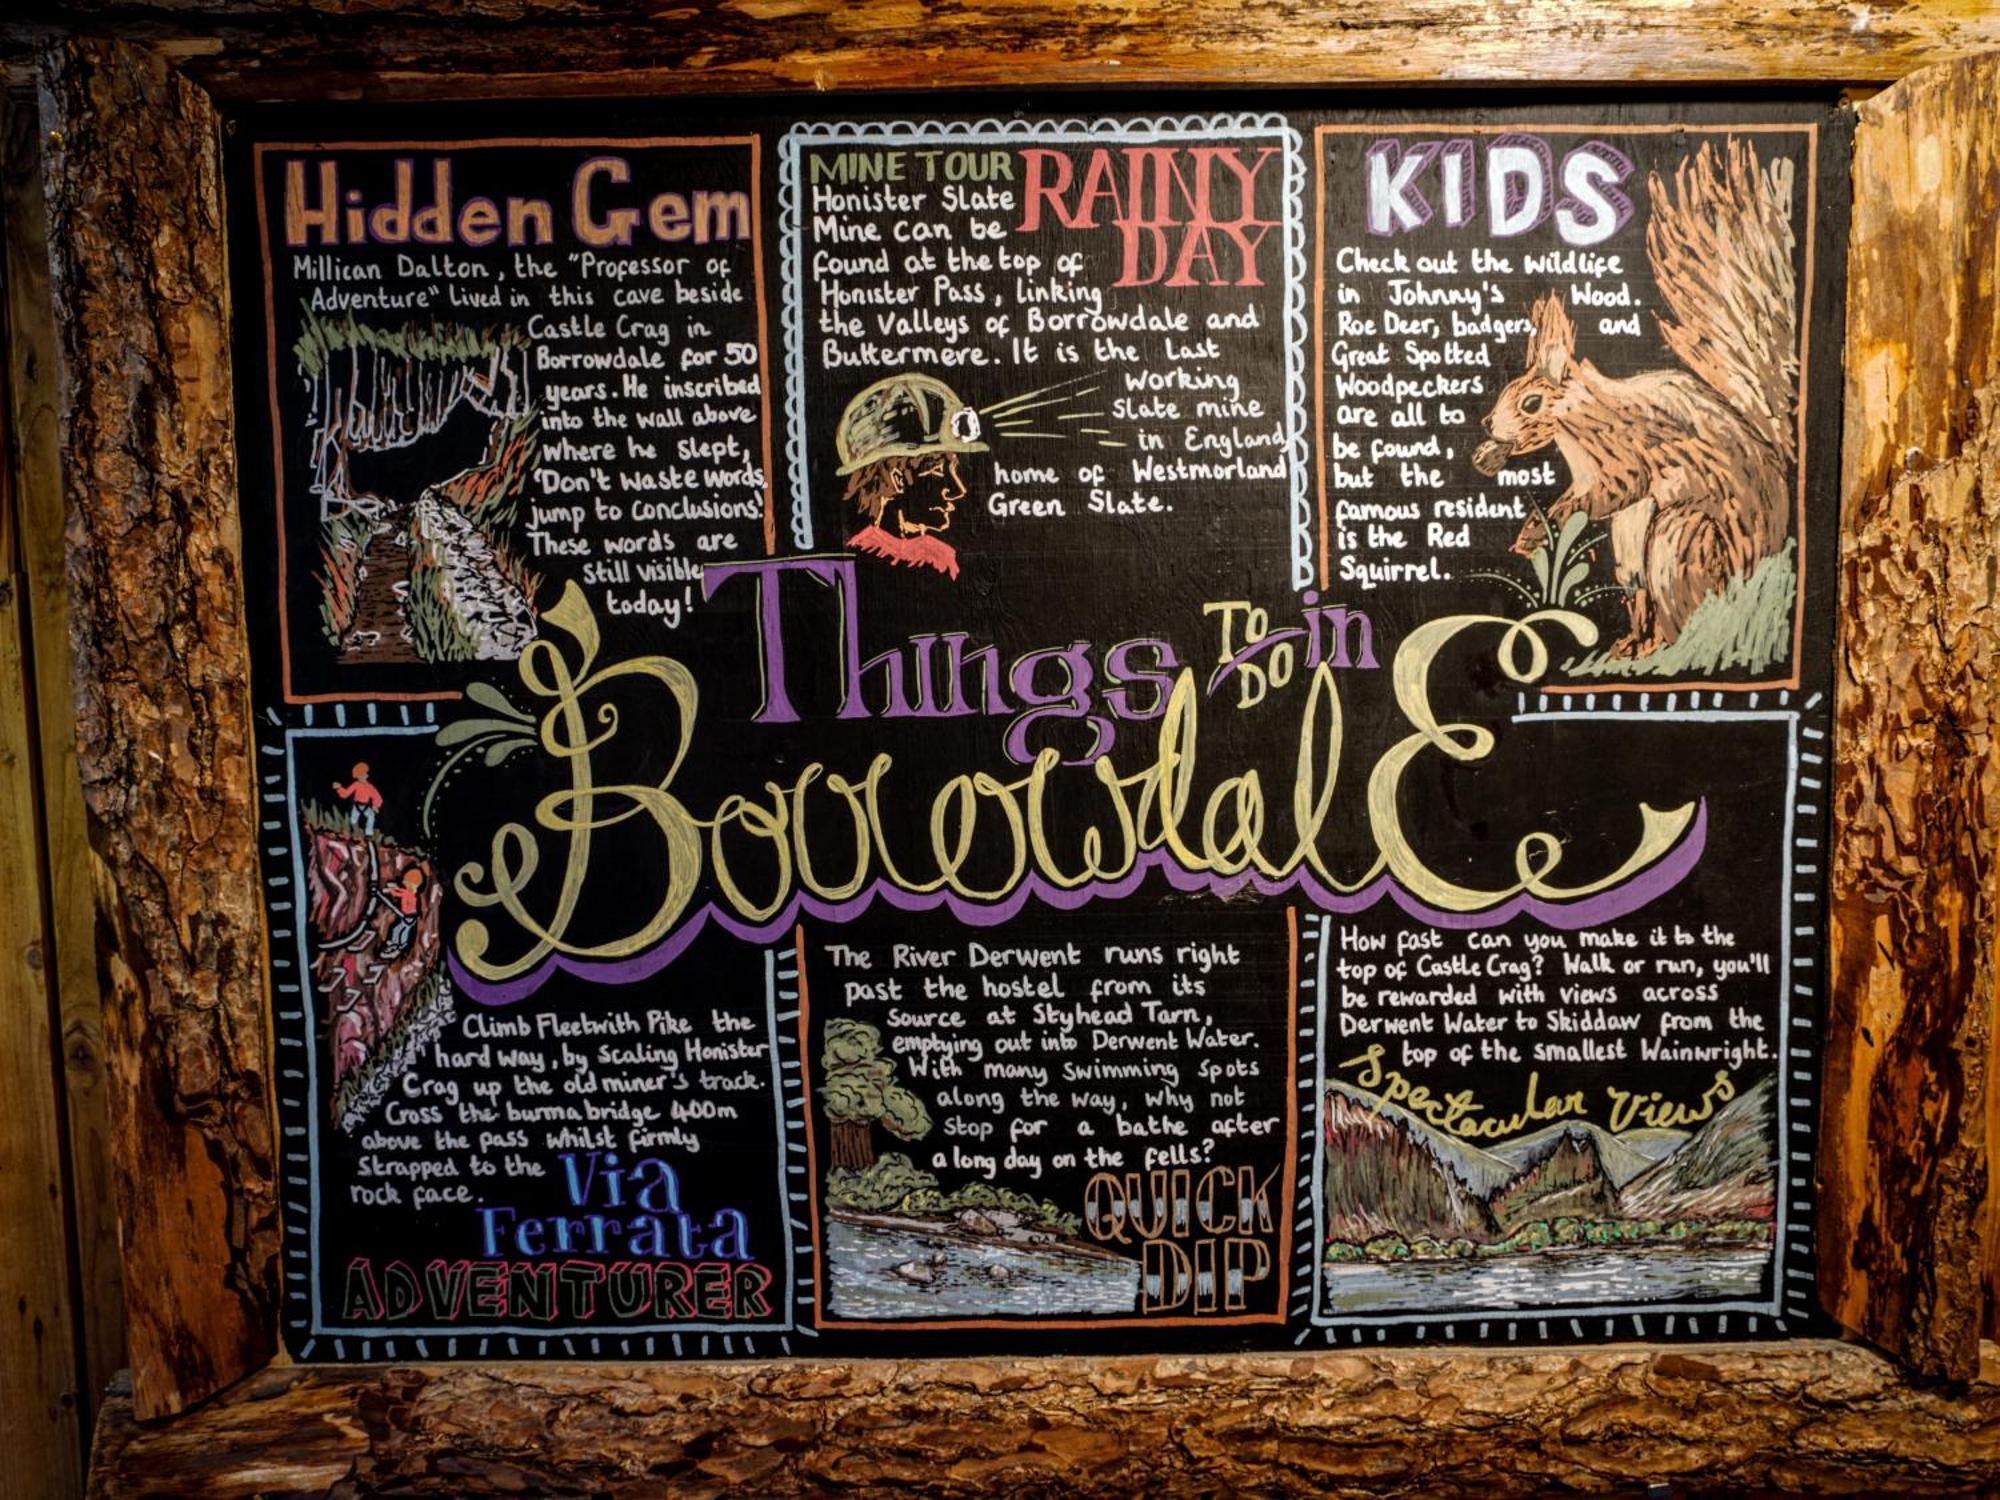 Hidden Gem
Millican Dalton, the "Professor of
Adventure" Lived in this cave beside
Castle Crag in
Borrowdale for 50
years. He inscribed
into the wall above
where he slept,
'Don't waste words,
jump to conclusions!'
These words are
still visible
today!
MINE TOUR
RAINY
DAY
Honister Slate
Mine can be
found at the top of
Honister Pass, linking
the Valleys of Borrowdale and
Buttermere. It is the Last
working
slate mine
in England,
home of Westmorland
Green Slate.
KIDS
Check out the wildlife
in Johnny's Wood.
Roe Deer, badgers, and
Great Spotted
Woodpeckers
are all to
be found,
but the most
famous resident
is the Red
Squirrel.
Things TO DO in
BorrowdalE
Climb Fleetwith Pike the
hard way, by scaling Honister
Crag up the old miner's track.
Cross the burma bridge 400m
above the pass whilst firmly
strapped to the
rock face.
Via
Ferrata
ADVENTURER
The River Derwent runs right
past the hostel from its
source at Styhead Tarn,
emptying out into Derwent Water.
With many swimming spots
along the way, why not
stop for a bathe after
a long day on the fells?
QUICK
DIP
How fast can you make it to the
top of Castle Crag? Walk or run, you'll
be rewarded with views across
Derwent Water to Skiddaw from the
top of the smallest Wainwright.
Spectacular Views